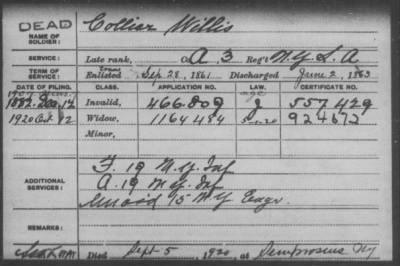 DEAD
NAME OF SOLDIER:
Collier Willis
SERVICE:
Late rank, Co. A 3 Reg't N.Y. L. A
TERM OF SERVICE:
Enlisted Sep 28, 1861 Discharged June 2, 1863
DATE OF FILING. CLASS. APPLICATION NO. LAW. CERTIFICATE NO.
1882. Dec. 12 Invalid, 466.809 557.429
1920 Oct. 12 Widow, 1164484 924672
Minor,
ADDITIONAL SERVICES:
F. 19 N.Y. Inf
A. 19 N.Y. Inf
15 N.Y. Engr.
REMARKS:
Died Sept 5, 1920, at Sempronius NY